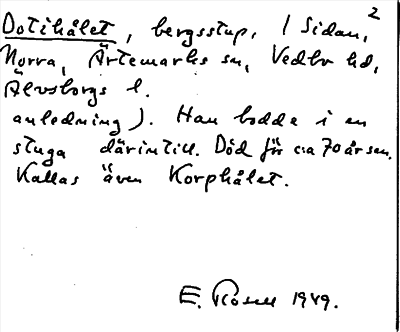 2
Dotihålet, bergsstup, i Sidan,
Norra, Ärtemarks sn, Vedbo hd,
Älvsborgs l.
anledning). Han bodde i en
stuga därintill. Död för c:a 70 år sen.
Kallas även Korphålet.
E. Rosell 1949.